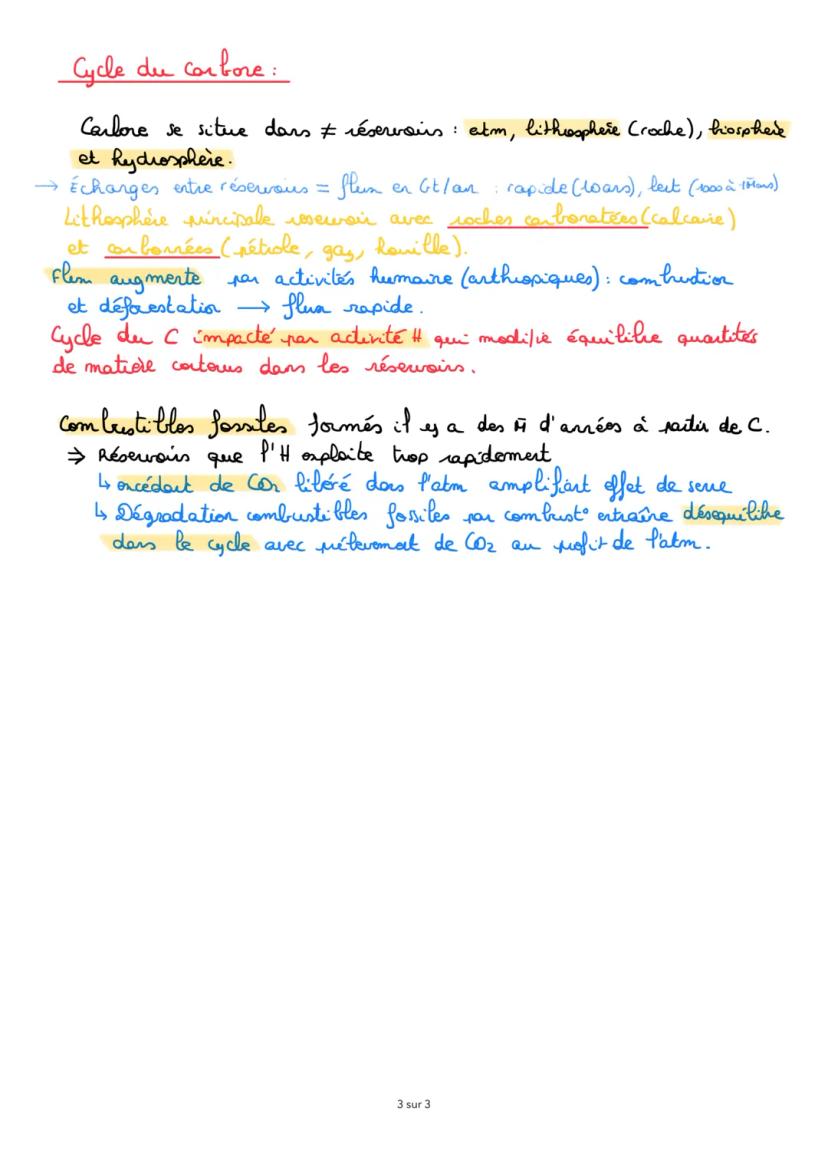 Cycle du carbone :
Carbone se situe dans ≠ réservoirs : atm, lithosphère (roche), biosphère
et hydrosphère.
→ Échanges entre réservoirs = flux en Gt/an : rapide (10ans), lent (1000 à 1M̄ans)
Lithosphère principale reservoir avec roches carbonatées (calcaire)
et carbonnées (pétrole, gaz, houille).
Flux augmente par activités humaine (anthropiques) : combustion
et déforestation → flux rapide.
Cycle du C impacté par activité H qui modifie équilibre quantités
de matière contenus dans les réservoirs.
Combustibles fossiles formés il y a des M̄ d'années à partir de C.
⇒ Réservoirs que l'H exploite trop rapidement
↳ excédant de CO2 libéré dans l'atm amplifiant effet de serre
↳ Dégradation combustibles fossiles par combust° entraîne déséquilibre
dans le cycle avec prélevement de CO2 au profit de l'atm.
3 sur 3